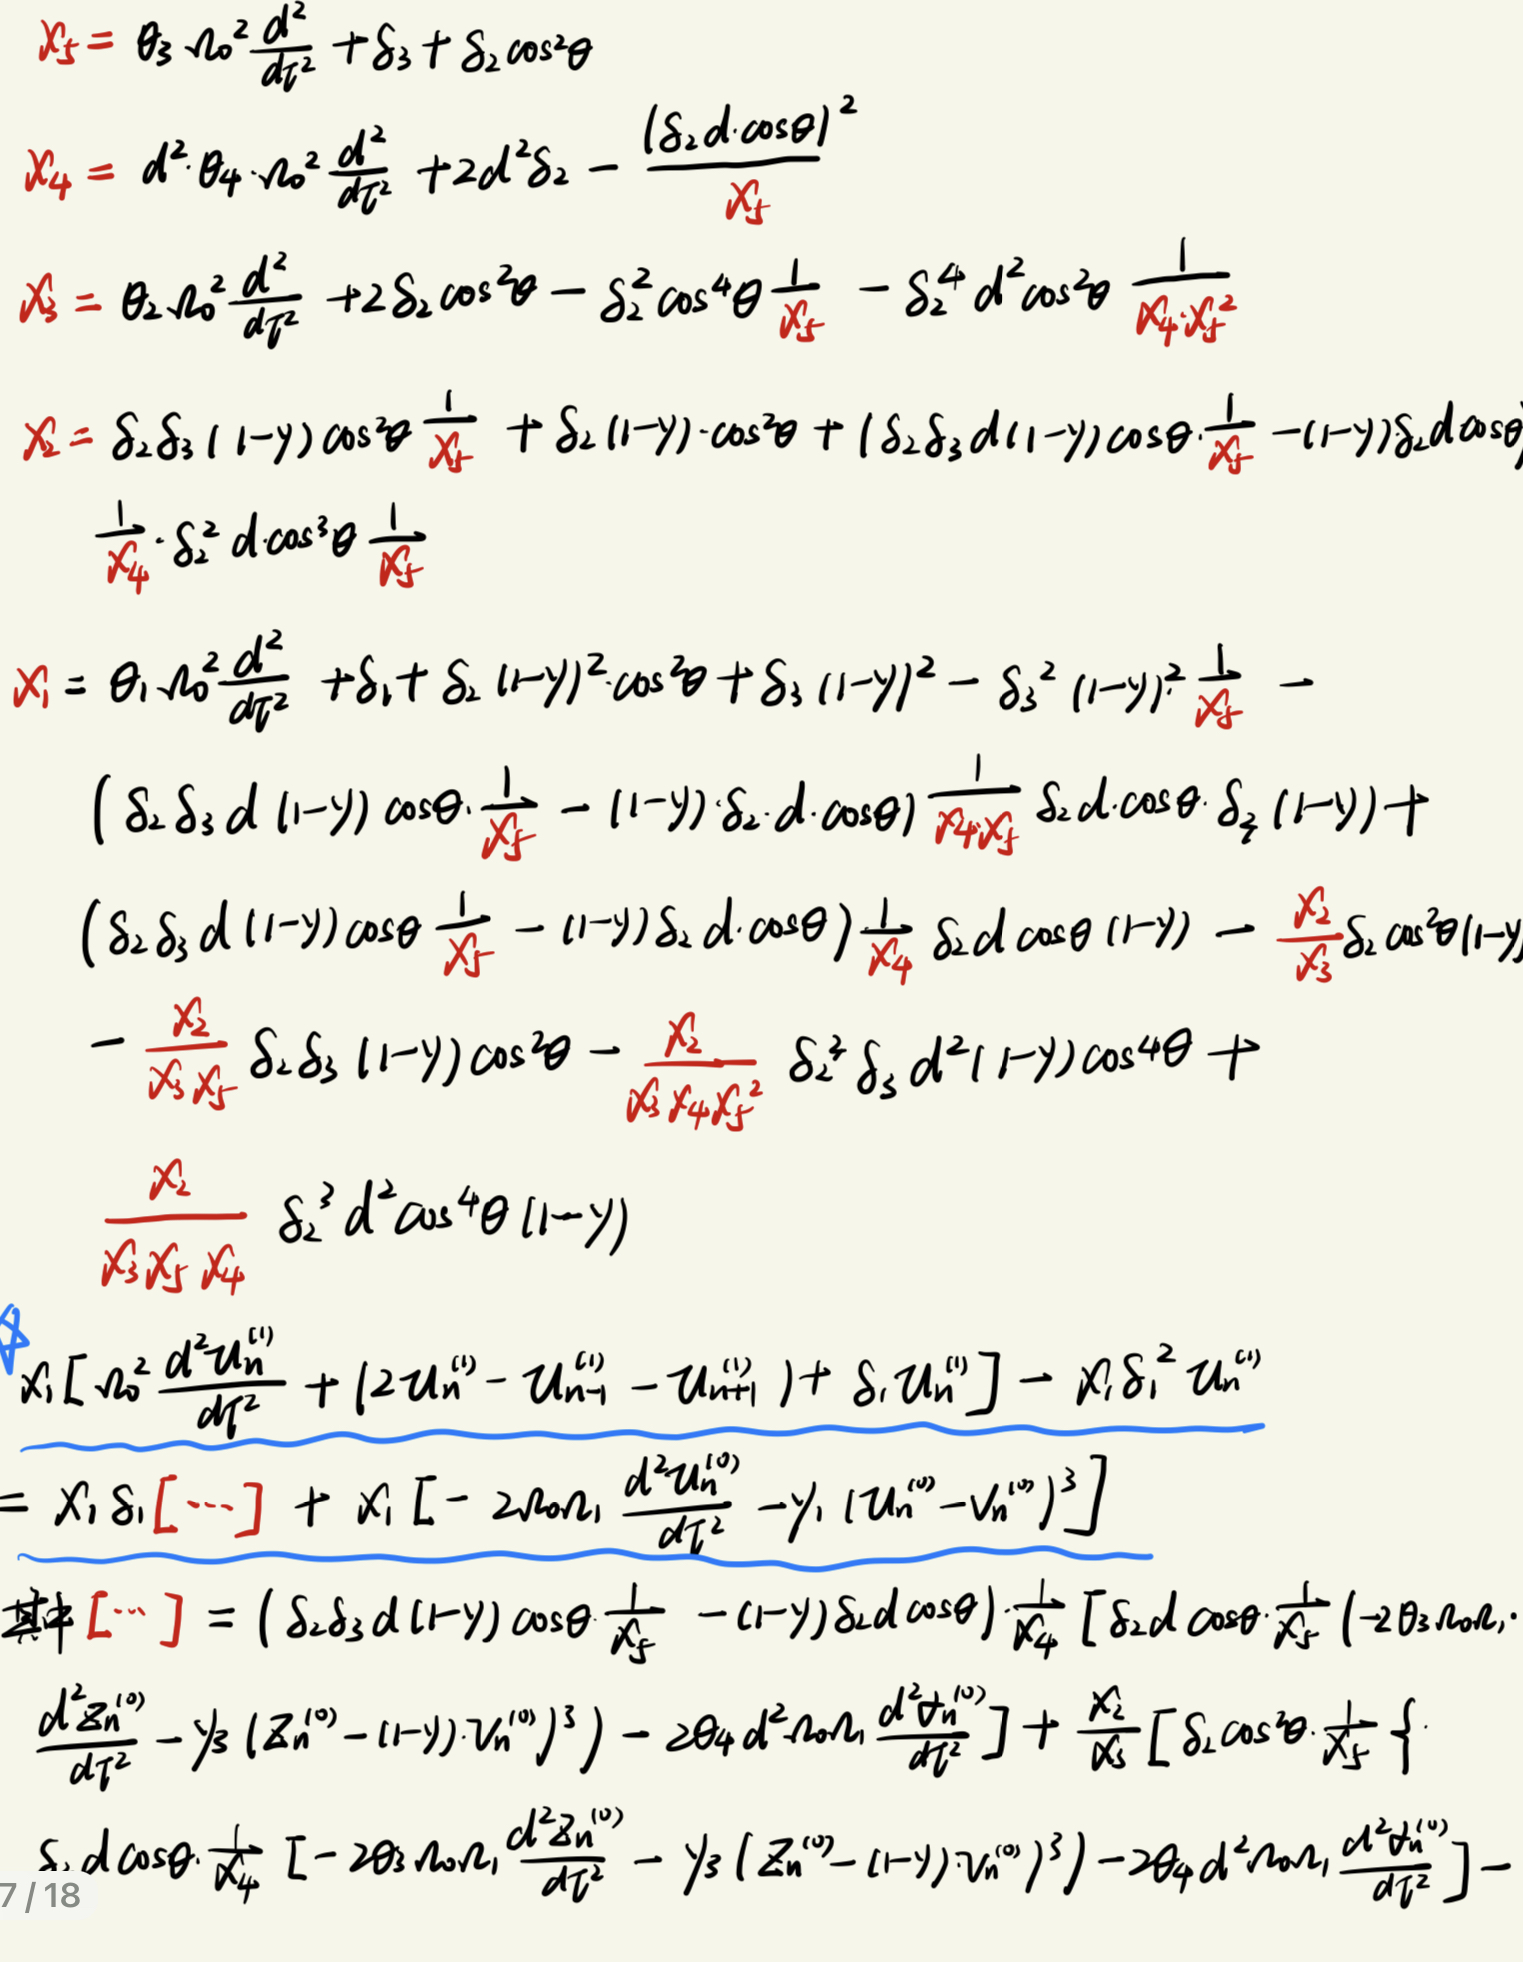 x₅ = θ₃ Ω₀² d²/dτ² + δ₃ + δ₂ cos²θ
x₄ = d²·θ₄·Ω₀² d²/dτ² + 2d²δ₂ − (δ₂ d·cosθ)²/x₅
x₃ = θ₂ Ω₀² d²/dτ² + 2δ₂ cos²θ − δ₂² cos⁴θ 1/x₅ − δ₂⁴ d² cos²θ 1/(x₄·x₅²)
x₂ = δ₂δ₃(1−γ)cos²θ 1/x₅ + δ₂(1−γ)·cos²θ + (δ₂δ₃d(1−γ)cosθ·1/x₅ − (1−γ)δ₂d cosθ)
1/x₄ · δ₂² d·cos³θ 1/x₅
x₁ = θ₁ Ω₀² d²/dτ² + δ₁ + δ₂(1−γ)²·cos²θ + δ₃(1−γ)² − δ₃²(1−γ)²·1/x₅ −
(δ₂δ₃d(1−γ)cosθ·1/x₅ − (1−γ)·δ₂·d·cosθ) 1/(x₄·x₅) δ₂d·cosθ·δ₃(1−γ) +
(δ₂δ₃d(1−γ)cosθ 1/x₅ − (1−γ)δ₂d·cosθ) 1/x₄ δ₂d cosθ(1−γ) − x₂/x₃ δ₂cos²θ(1−γ)
− x₂/(x₃x₅) δ₂δ₃(1−γ)cos²θ − x₂/(x₃x₄x₅²) δ₂³δ₃d²(1−γ)cos⁴θ +
x₂/(x₃x₅x₄) δ₂³d²cos⁴θ(1−γ)
x₁[Ω₀² d²uₙ⁽¹⁾/dτ² + (2uₙ⁽¹⁾ − uₙ₋₁⁽¹⁾ − uₙ₊₁⁽¹⁾) + δ₁uₙ⁽¹⁾] − x₁δ₁²uₙ⁽¹⁾
= x₁δ₁[⋯] + x₁[−2Ω₀Ω₁ d²uₙ⁽⁰⁾/dτ² − γ₁(uₙ⁽⁰⁾ − vₙ⁽⁰⁾)³]
其中 [⋯] = (δ₂δ₃d(1−γ)cosθ·1/x₅ − (1−γ)δ₂d cosθ)·1/x₄ [δ₂d cosθ·1/x₅ (−2θ₃Ω₀Ω₁·
d²zₙ⁽⁰⁾/dτ² − γ₃(zₙ⁽⁰⁾ − (1−γ)·vₙ⁽⁰⁾)³) − 2θ₄d²Ω₀Ω₁ d²αₙ⁽⁰⁾/dτ²] + x₂/x₃ [δ₂cos²θ·1/x₅ {·
δ₂ d cosθ·1/x₄ [−2θ₃Ω₀Ω₁ d²zₙ⁽⁰⁾/dτ² − γ₃(zₙ⁽⁰⁾ − (1−γ)·vₙ⁽⁰⁾)³) − 2θ₄d²Ω₀Ω₁ d²αₙ⁽⁰⁾/dτ²] −
7 / 18